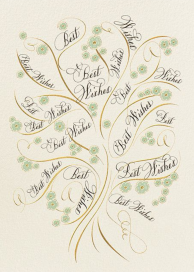 Best
Wishes
Best Wishes
Best
Wishes
Wishes
Best
Wishes
Best Wishes
Best Wishes
Best Wishes
Best Wishes
Best
Wishes
Best Wishes
Best Wishes